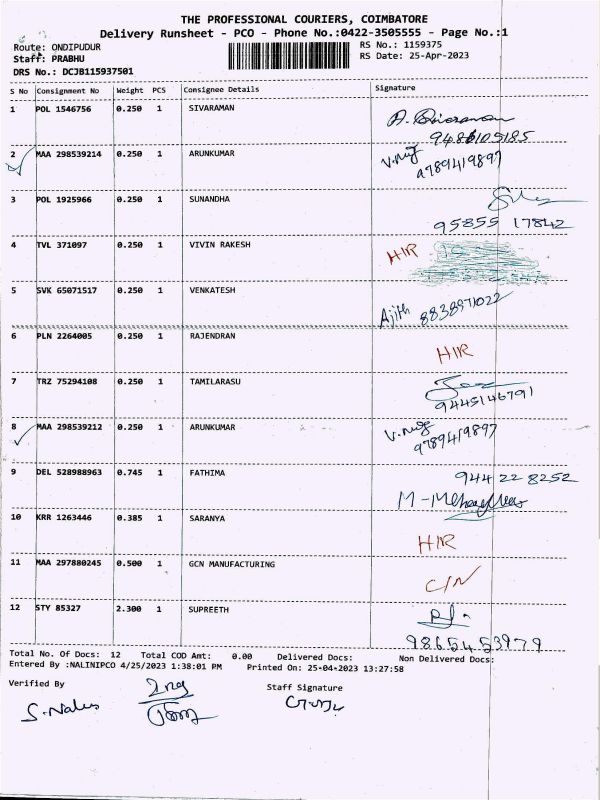 THE PROFESSIONAL COURIERS, COIMBATORE
Delivery Runsheet - PCO - Phone No.:0422-3505555 - Page No.:1
Route: ONDIPUDUR RS No.: 1159375
Staff: PRABHU RS Date: 25-Apr-2023
DRS No.: DCJB115937501
S No Consignment No Weight PCS Consignee Details Signature
1 POL 1546756 0.250 1 SIVARAMAN
9486105185
2 MAA 298539214 0.250 1 ARUNKUMAR
9789419897
3 POL 1925966 0.250 1 SUNANDHA
95855 17842
4 TVL 371097 0.250 1 VIVIN RAKESH HIR
5 SVK 65071517 0.250 1 VENKATESH
Ajith 8838971022
6 PLN 2264005 0.250 1 RAJENDRAN
HIR
7 TRZ 75294108 0.250 1 TAMILARASU
9445146791
8 MAA 298539212 0.250 1 ARUNKUMAR
9789419897
9 DEL 528988963 0.745 1 FATHIMA 944 228252
10 KRR 1263446 0.385 1 SARANYA
HIR
11 MAA 297880245 0.500 1 GCN MANUFACTURING
C/N
12 STY 85327 2.300 1 SUPREETH
9865453979
Total No. Of Docs: 12 Total COD Amt: 0.00 Delivered Docs: Non Delivered Docs:
Entered By :NALINIPCO 4/25/2023 1:38:01 PM Printed On: 25-04-2023 13:27:58
Verified By Staff Signature